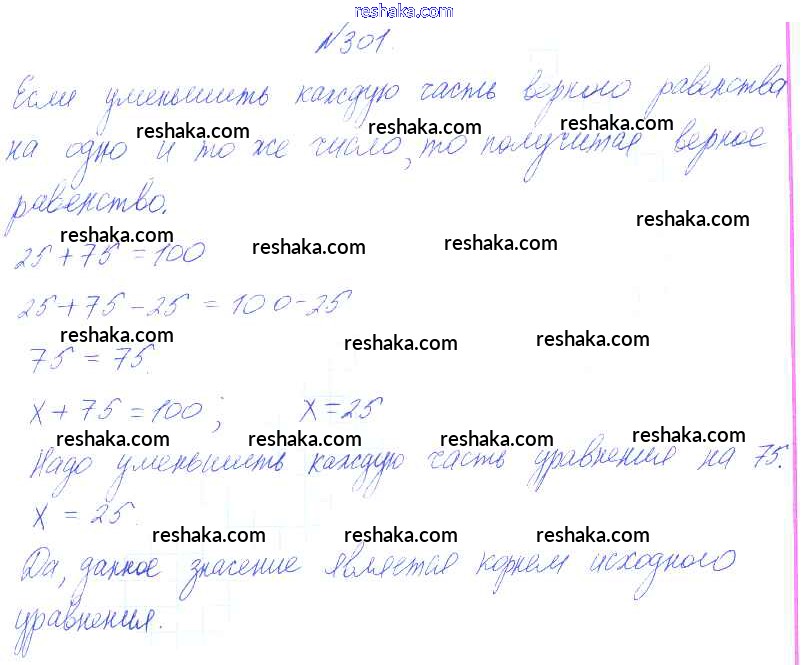 reshaka.com
№301.
Если уменьшить каждую часть верного равенства
reshaka.com reshaka.com reshaka.com
на одно и то же число, то получится верное
равенство.
reshaka.com reshaka.com reshaka.com reshaka.com
25+75=100
25+75-25=100-25
reshaka.com reshaka.com reshaka.com
75=75.
x+75=100; x=25
reshaka.com reshaka.com reshaka.com reshaka.com
Надо уменьшить каждую часть уравнения на 75.
x=25.
reshaka.com reshaka.com reshaka.com
Да, данное значение является корнем исходного
уравнения.